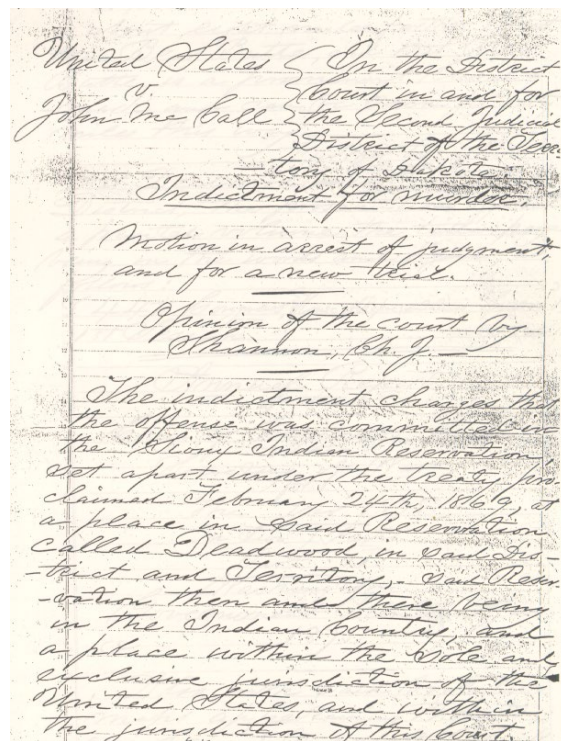 United States { In the District
v. Court in and for
John McCall the Second Judicial
District of the Terri-
tory of Dakota.
Indictment for murder.
Motion in arrest of judgment,
and for a new trial.
Opinion of the court by
Shannon, Ch. J.—
The indictment charges that
the offense was committed in
the Sioux Indian Reservation
set apart under the treaty pro-
claimed February 24th, 1869, at
a place in said Reservation
called Deadwood, in said Dis-
-trict and Territory,- said Reser-
-vation then and there being
in the Indian Country, and
a place within the sole and
exclusive jurisdiction of the
United States, and within
the jurisdiction of this Court.